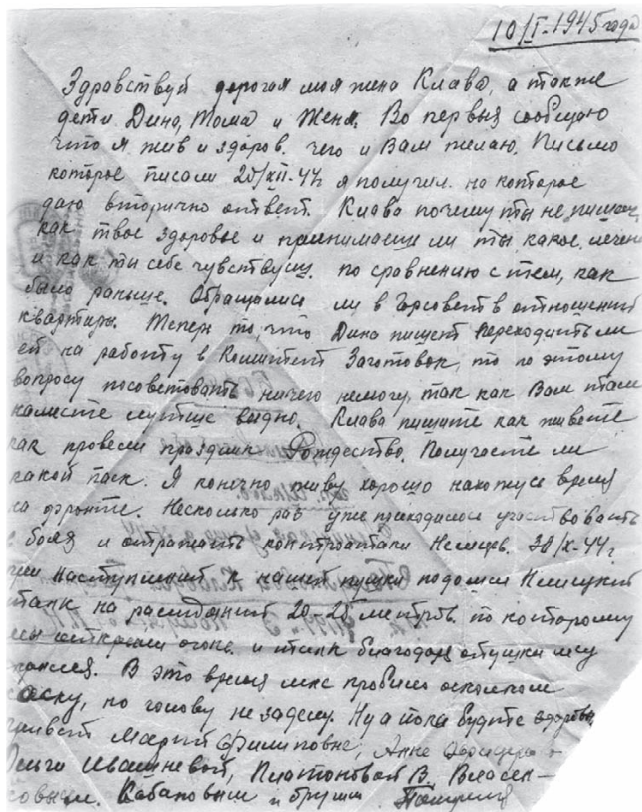 10/I-1945 года
Здравствуй дорогая моя жена Клава, а также
дети Дина, Тома и Женя. Во первых сообщаю
что я жив и здоров. чего и Вам желаю. Письмо
которое писали 20/XII-44г. я получил. на которое
даю вторично ответ. Клава почему ты не пишешь,
как твое здоровье и принимаеш ли ты какое лечени
и как ты себе чувствуеш. по сравнению с тем, как
было раньше. Обращались ли в Горсовет в отношении
квартиры. Теперь то что Дина пишет переходить ли
ей на работу в Комитет Заготовок, то по этому
вопросу посоветовать ничего немогу, так как Вам там
наместе лутше видно. Клава пишите как живете
как провели праздник Рождество. Получаете ли
какой паек. Я конечно живу хорошо нахожусь время
на фронте. Несколько раз уже приходилось участвовать
в боях и отражать контратаки Немцев. 30/X-44г.
при наступлении к нашей пушки подошел Немецкий
танк на растоянии 20-25 метров. по которому
мы открыли огонь. и танк благодаря пушки
. В это время мне пробило осколком
каску, но голову не задело. Ну а пока будьте здоровы
привет Марии Филиповне, Анне
Ольги Ивашневой, Платоновой В.
Кабановым и другим